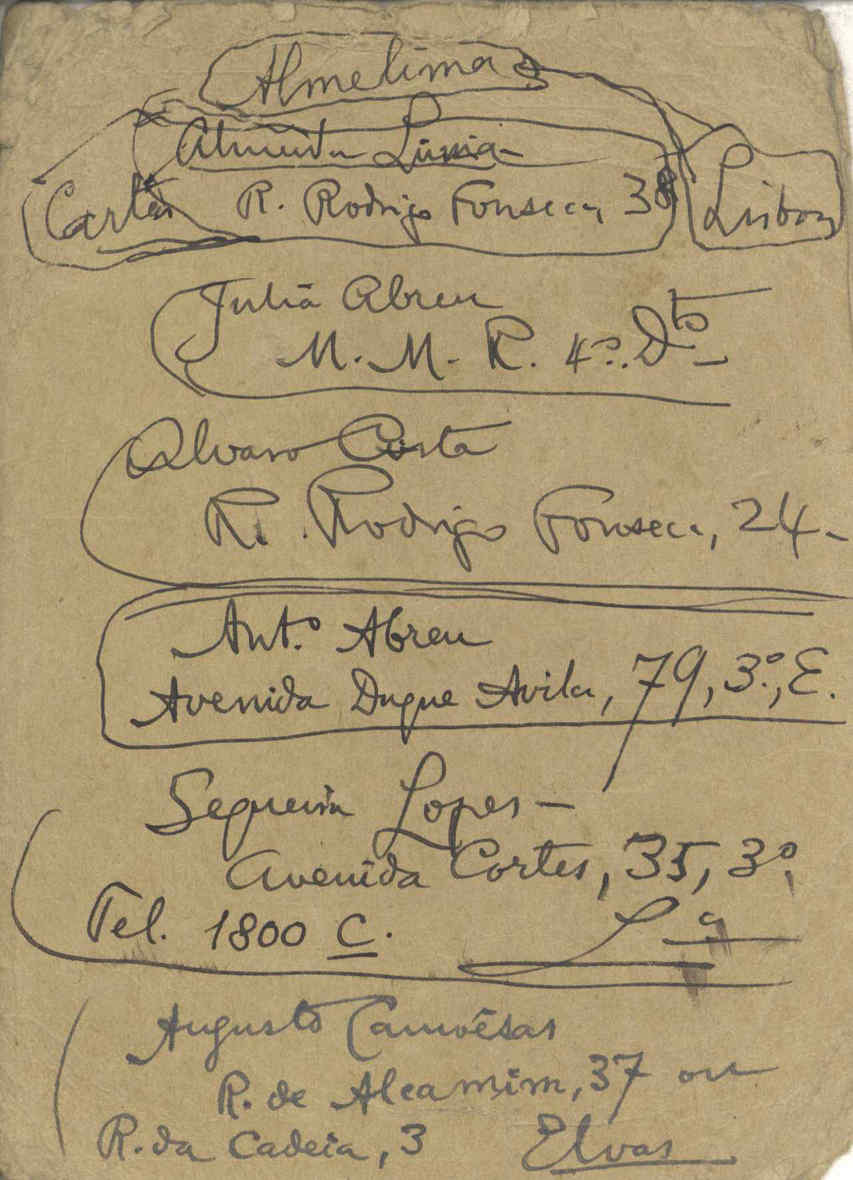 Almelima
Almeida Lima -
Cartas R. Rodrigo Fonseca, 38 Lisboa
Julia Abreu
M. M. R. 4º. Dto -
Alvaro Costa
R. Rodrigo Fonseca, 24 -
Ant.º Abreu
Avenida Duque Avila, 79, 3º, E.
Sequeira Lopes -
Avenida Cortes, 35, 3º,
Tel. 1800 C. Lª
Augusto Camoêsas
R. de Alcamim, 37 ou
R. da Cadeia, 3 Elvas